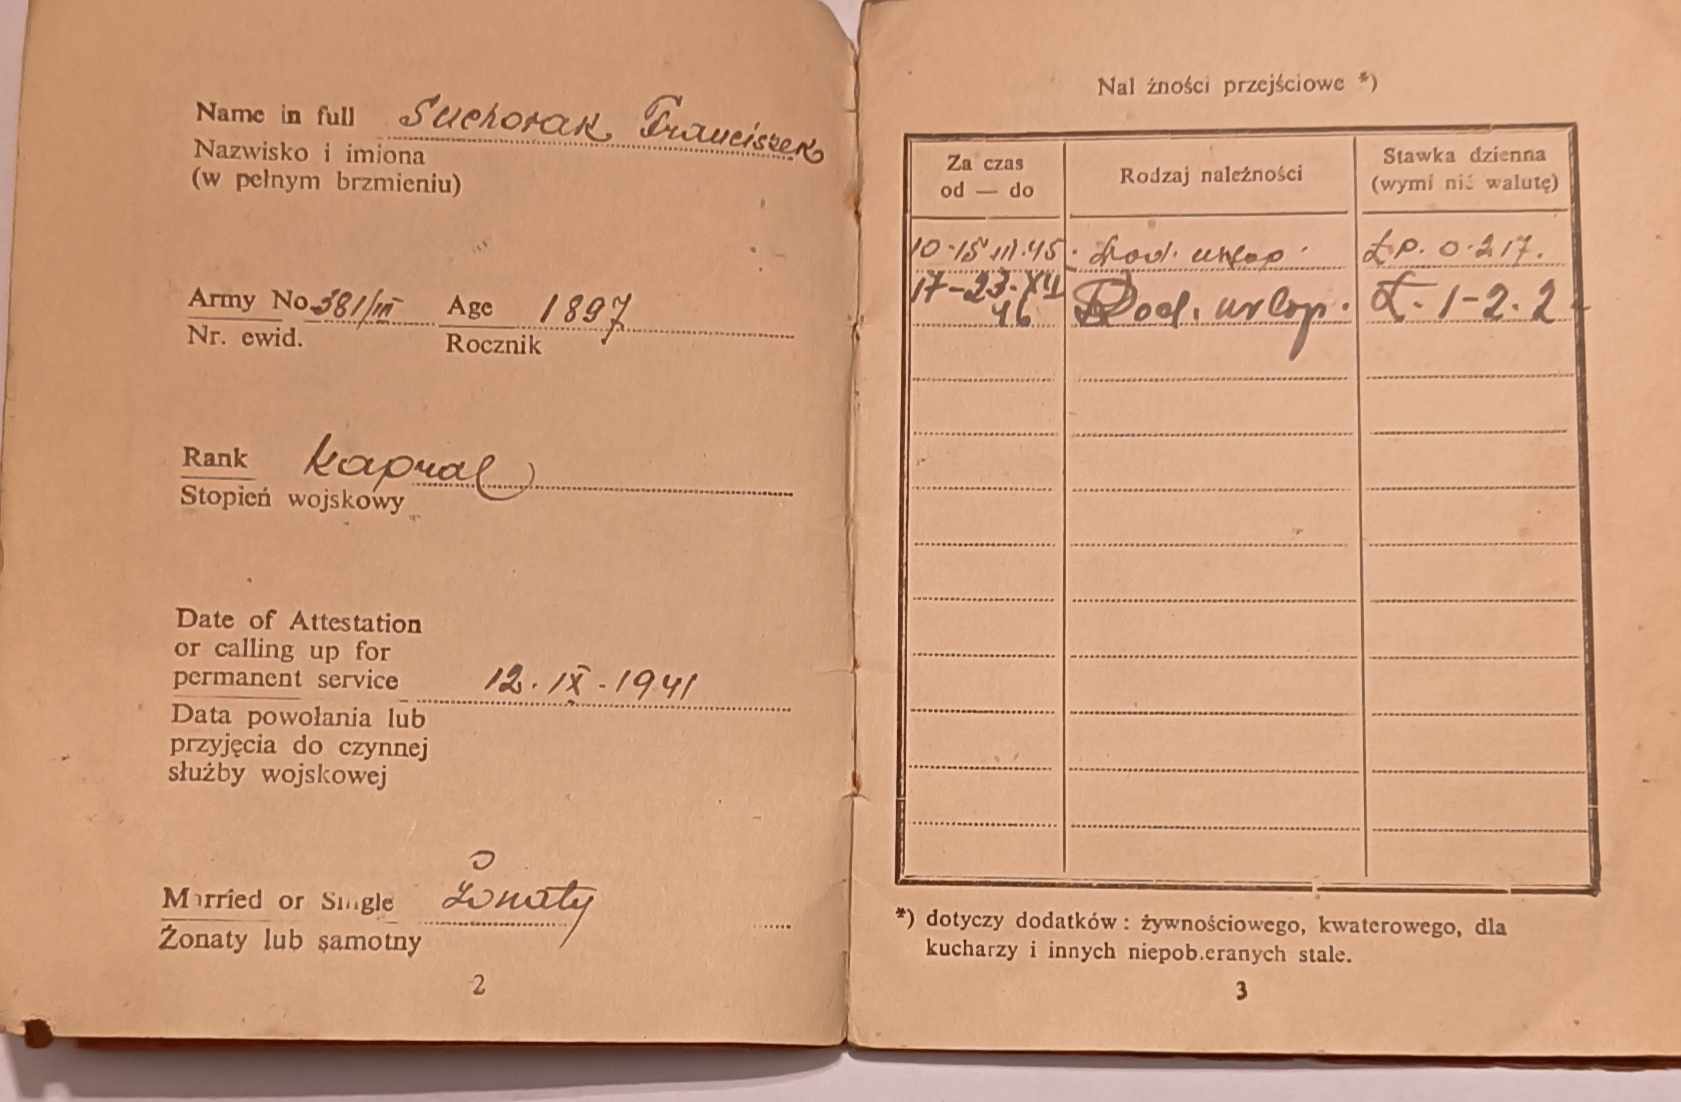 Name in full Suchorak Franciszek
Nazwisko i imiona
(w pełnym brzmieniu)
Army No 381/III Age 1897
Nr. ewid. Rocznik
Rank kapral
Stopień wojskowy
Date of Attestation
or calling up for
permanent service 12.IX.1941
Data powołania lub
przyjęcia do czynnej
służby wojskowej
Married or Single Żonaty
Żonaty lub samotny
2
Nal żności przejściowe *)
Za czas
od — do
Rodzaj należności
Stawka dzienna
(wymi nić walutę)
10-15 III.45 urlop £P. 0.217.
17-23.XII
46 Dod. urlop. £.1-2.2
*) dotyczy dodatków: żywnościowego, kwaterowego, dla
kucharzy i innych niepob.eranych stale.
3